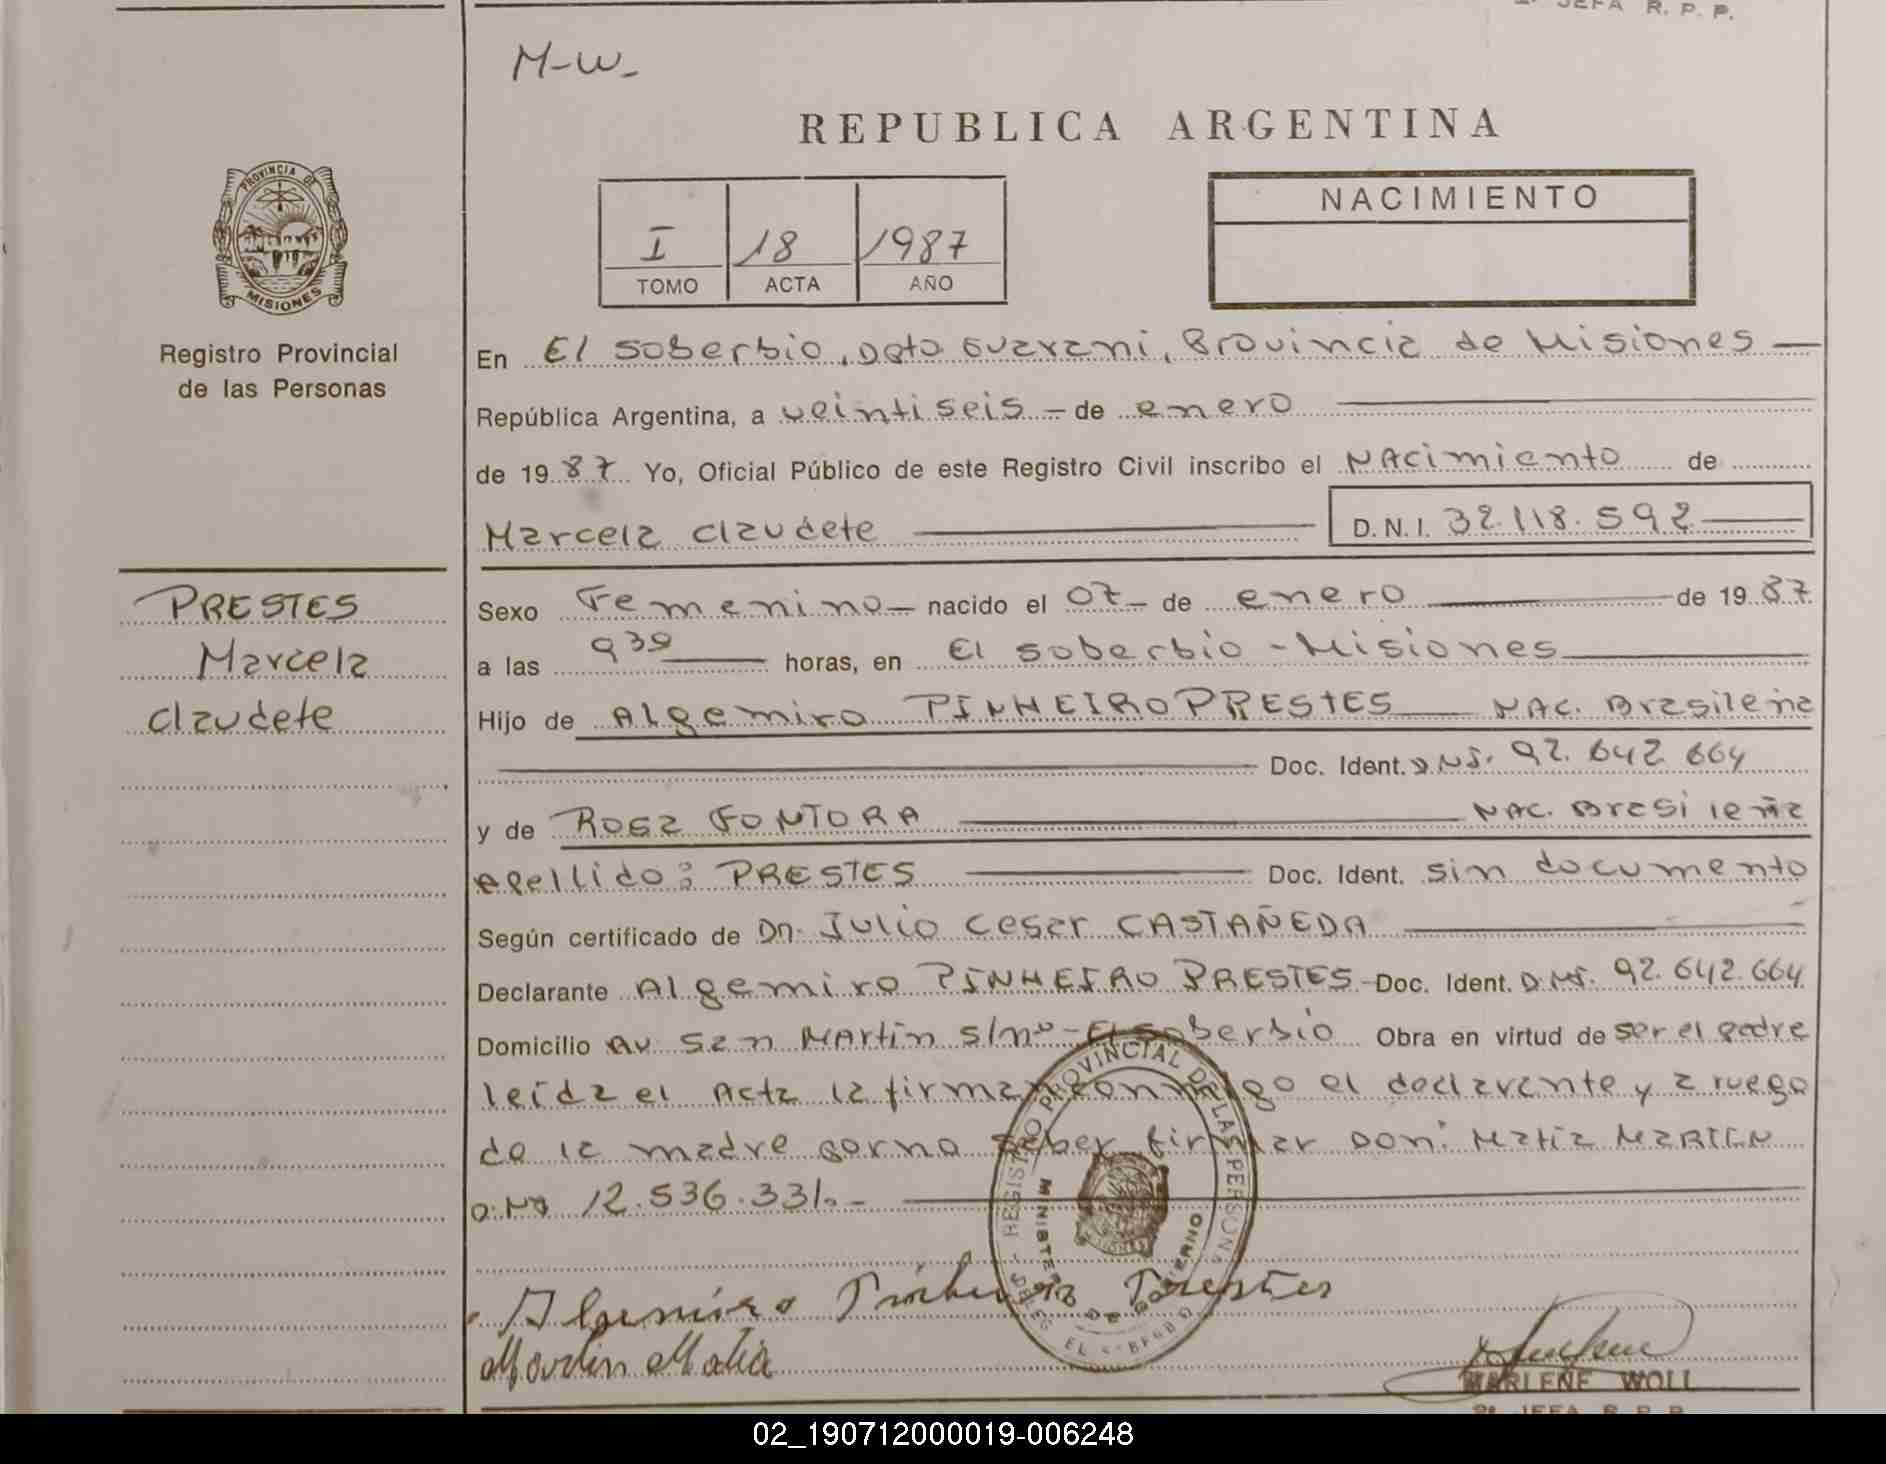 2º JEFA R. P. P.
M-W-
REPUBLICA ARGENTINA
PROVINCIA DE
MISIONES
Registro Provincial
de las Personas
I 18 1987
TOMO ACTA AÑO
NACIMIENTO
En El Soberbio, Dpto Guarani, Provincia de Misiones
República Argentina, a veintiseis - de enero
de 1987 Yo, Oficial Público de este Registro Civil inscribo el Nacimiento de
Marcela Claudete D.N.I. 32.118.592
PRESTES
Marcela
Claudete
Sexo Femenino - nacido el 07 - de enero de 1987
a las 930 horas, en El Soberbio - Misiones
Hijo de Algemiro PINHEIRO PRESTES NAC. Brasileña
Doc. Ident. D.N.I. 92.642.664
y de Rosa FONTORA NAC. Brasileña
apellido: PRESTES Doc. Ident. sin documento
Según certificado de Dn. Julio Cesar CASTAÑEDA
Declarante Algemiro PINHEIRO PRESTES - Doc. Ident. D.N.I. 92.642.664
Domicilio Av. San Martin s/nº - El Soberbio Obra en virtud de ser el padre
leída el Acta la firman conmigo el declarante y a ruego
de la madre por no saber firmar Don: Matia MARTEN
D.N.I 12.536.331.-
REGISTRO PROVINCIAL DE LAS PERSONAS
MINISTERIO DE GOBIERNO
DELEG. EL SOBERBIO
Algemiro Pinheiro Prestes
Matia
MARLENE WOLL
2ª JEFA R. P. P.
02_190712000019-006248